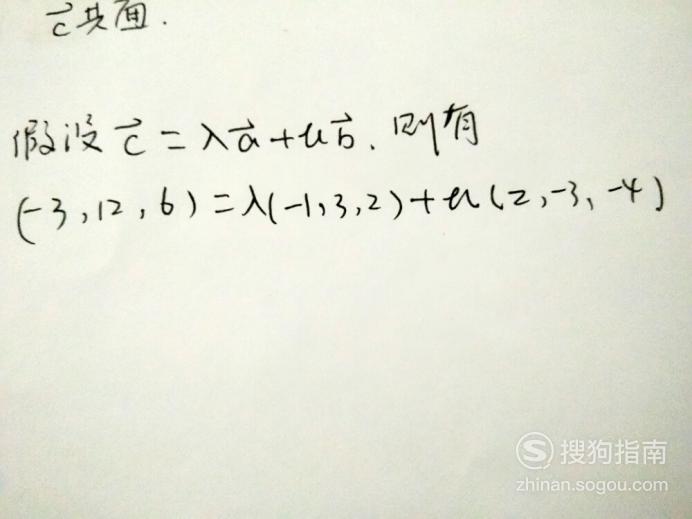 c⃗共面.
假设 c⃗ = λa⃗+ub⃗. 则有
(-3,12,6)=λ(-1,3,2)+u(2,-3,-4)
S 搜狗指南
zhinan.sogou.com